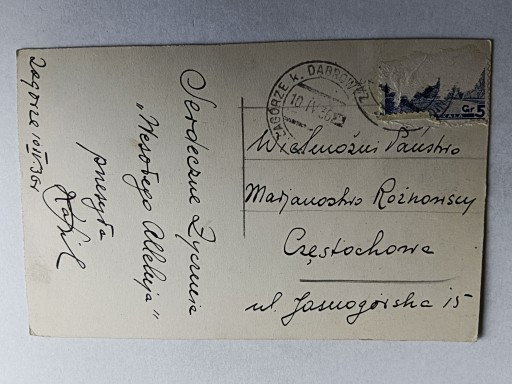 Zagórze 10 IV 36 r
Serdeczne Życzenia
„Wesołego Alleluja"
przesyła
ZAGÓRZE K. DĄBROWY
10 IV 36
Gr 5
Wielmożni Państwo
Marjanostwo Rożnowscy
Częstochowa
ul. Jasnogórska 15